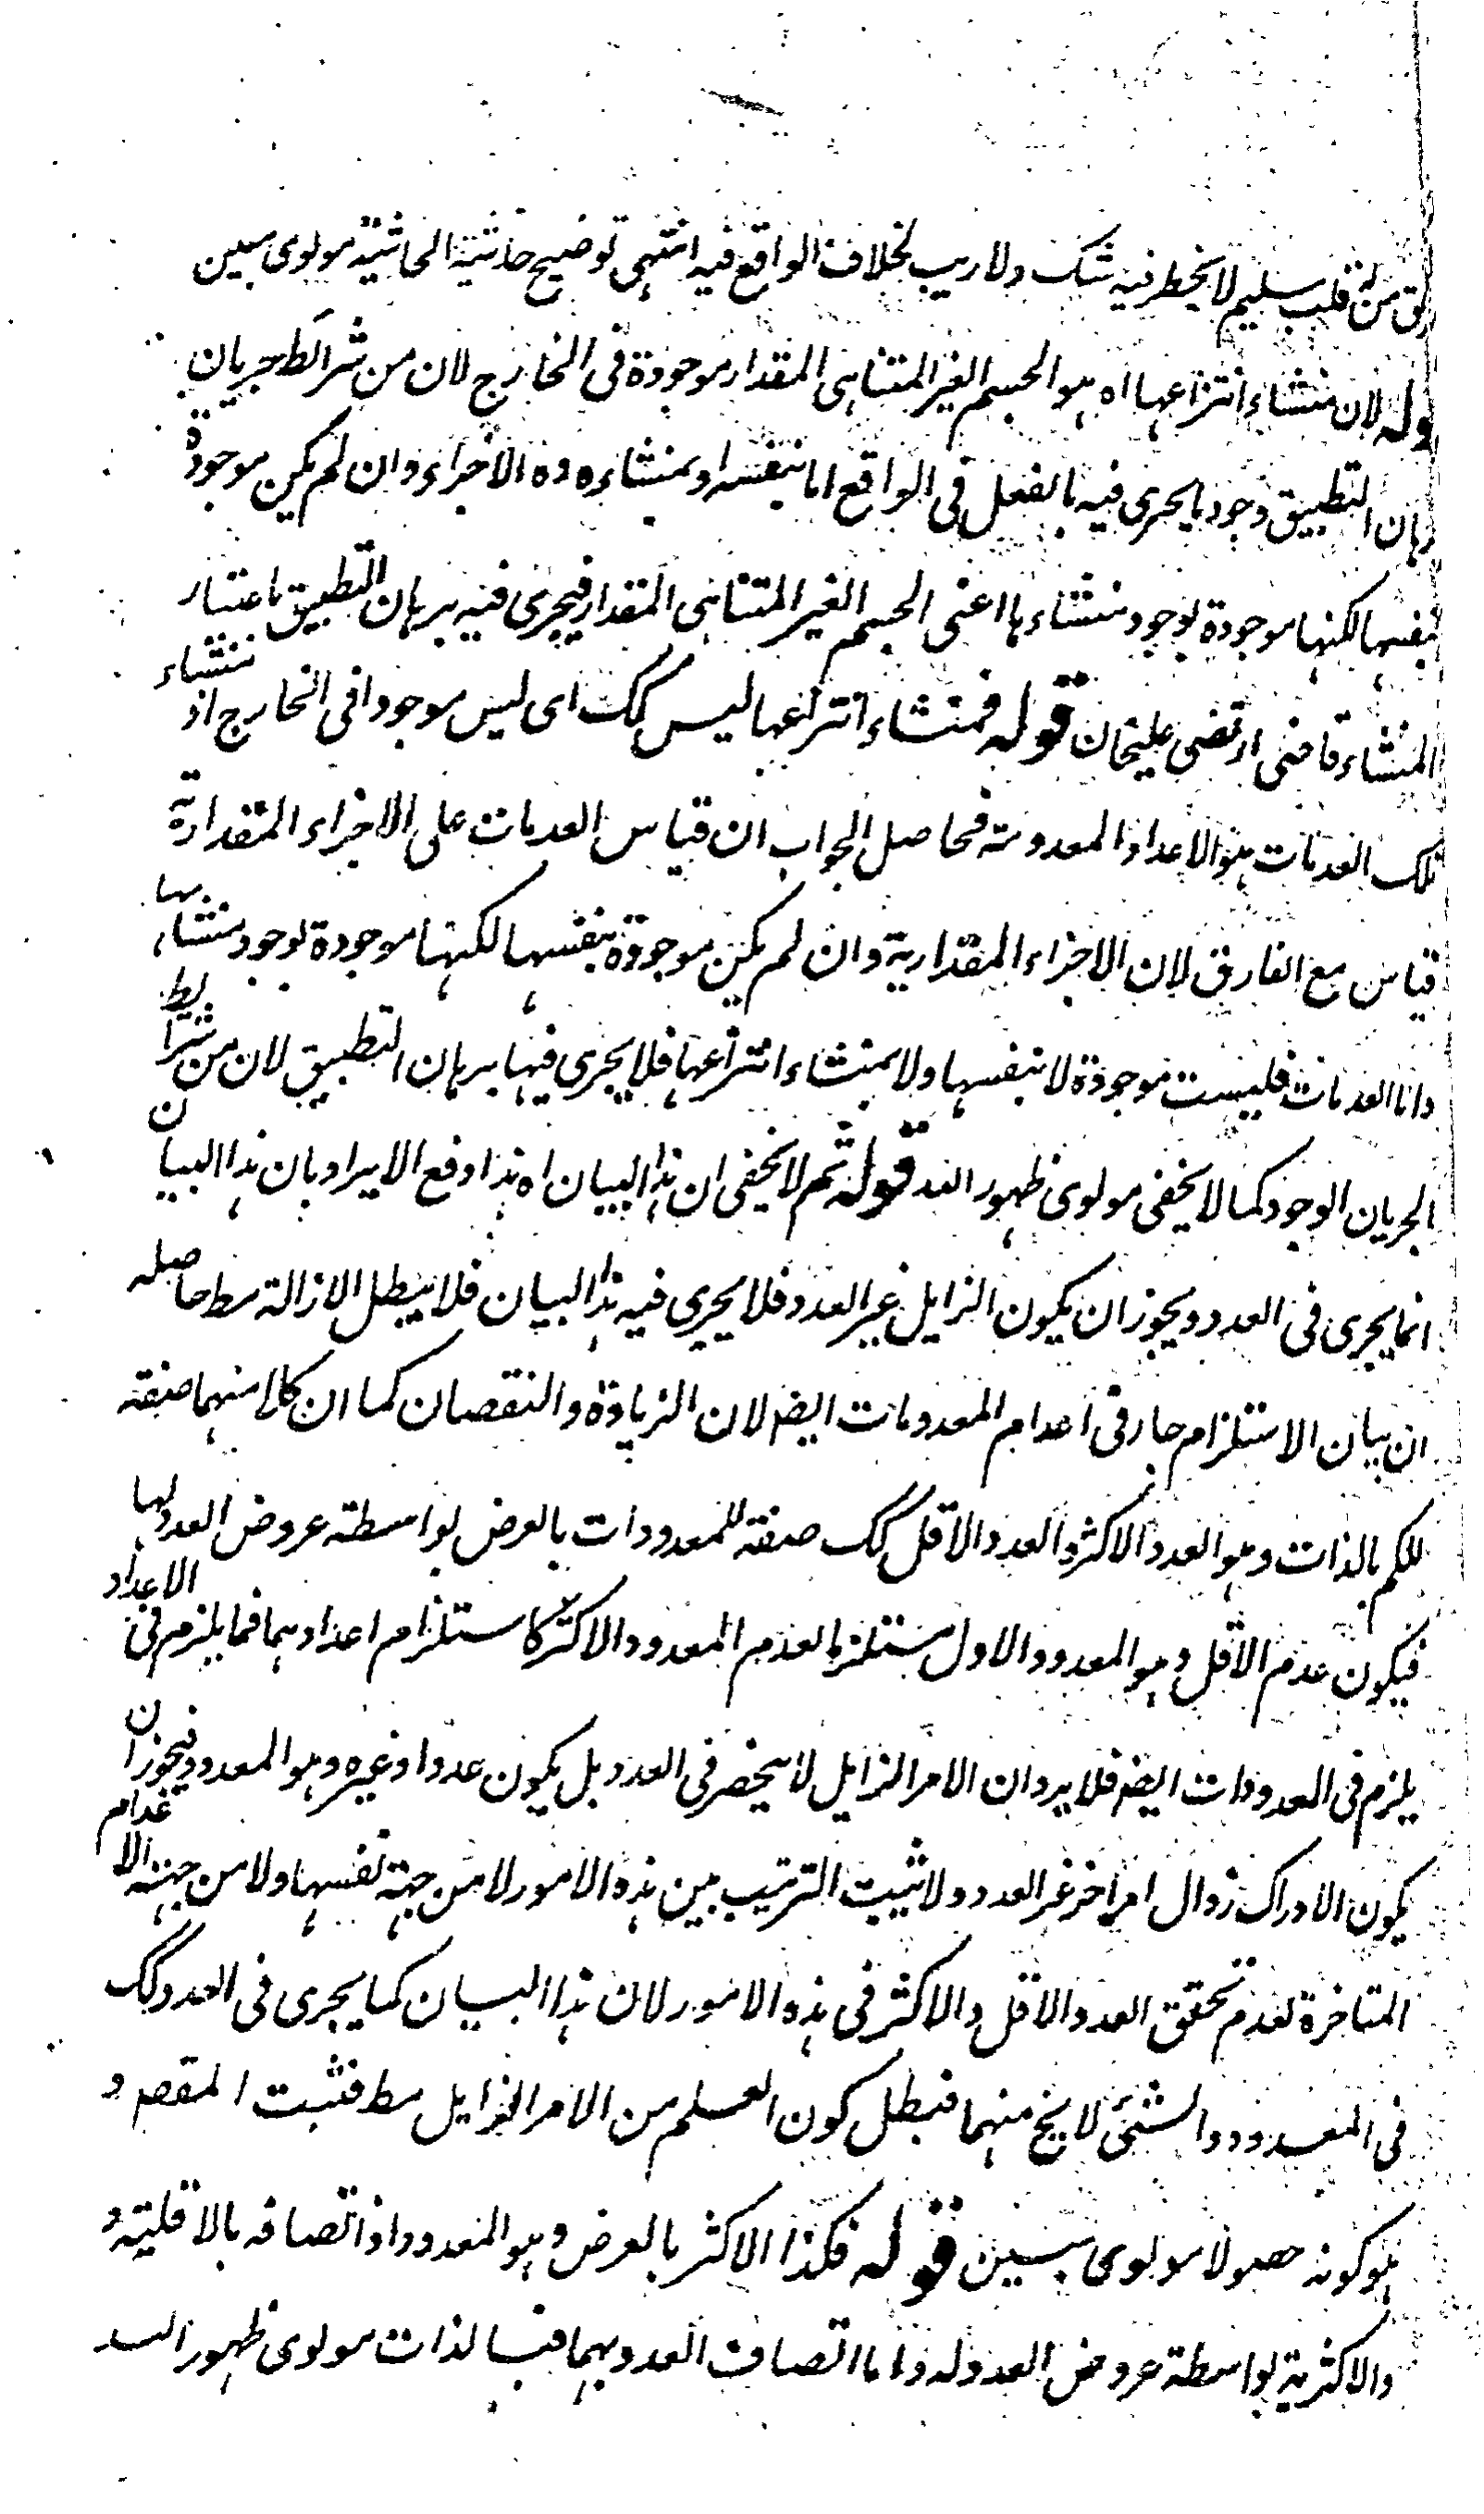 لق من قلب سليم لا يخطر فيه شك ولا ريب بخلاف الواقع فيه انتهى توضيح حاشية الحاشية مولوى مبين
وله لان منشاء انتزاعها اه هو الجسم الغير المتناهى المقدار موجودة فى الخارج لان من شرائط جريان
رهان التطبيق وجود ما يجرى فيه بالفعل فى الواقع اما بنفسه او بمنشاءه وه الاجزاء وان لم يكن موجودة
بنفسها لكنها موجودة بوجود منشاءها اعنى الجسم الغير المتناهى المقدار فيجرى فيه برهان التطبيق باعتبار
المنشاء قاضى ارتضى عليخان قوله فمنشاء انتزاعها ليس كك اى ليس موجودا فى الخارج اذ منشاء
تلك العدمات هو الاعداد المعدومة فحاصل الجواب ان قياس العدمات على الاجزاء المقدارية
قياس مع الفارق لان الاجزاء المقدارية وان لم يكن موجودة بنفسها لكنها موجودة بوجود منشاءها
واما العدمات فليست موجودة لا بنفسها ولا بمنشاء انتزاعها فلا يجرى فيها برهان التطبيق لان من شرائط
الجريان الوجود كما لا يخفى مولوى ظهور الله قوله ثم لا يخفى ان هذا البيان اه هذا دفع الايراد بان هذا البيان
انما يجرى فى العدد ويجوز ان يكون الزايل غير العدد فلا يجرى فيه هذا البيان فلا يبطل الازالة مط حاصله
ان بيان الاستلزام جار فى اعدام المعدومات ايضا لان الزيادة والنقصان كما ان كلا منهما صفة
للكم بالذات وهو العدد الاكثر والعدد الاقل كك صفة للمعدودات بالعرض بواسطة عروض العدد لها
فيكون عدم الاقل وهو المعدود الاول مستلزما لعدم المعدود الاكثر كاستلزام اعدادهما فما يلزم فى الاعداد
يلزم فى المعدودات ايضا فلا يرد ان الامر الزايل لا ينحصر فى العدد بل يكون عددا وغيره وهو المعدود فيجوز ان
يكون الادراك زوال امر اخر غير العدد ولا يثبت الترتيب بين هذه الامور لا من جهة نفسها ولا من جهة الاعدام
المتاخرة لعدم تحقق العدد الاقل والاكثر فى هذه الامور لان هذا البيان كما يجرى فى العدد كك
فى المعدود والشئ لا يخ منهما فبطل كون العلم من الامر الزايل مط فثبت المقصد و
هو كونه حصولا مولوى مبين قوله فكذا الاكثر بالعرض وهو المعدود اذ اتصافه بالاقلية و
والاكثرية بواسطة عروض العدد له واما اتصاف العدد بهما فبالذات مولوى ظهور الله